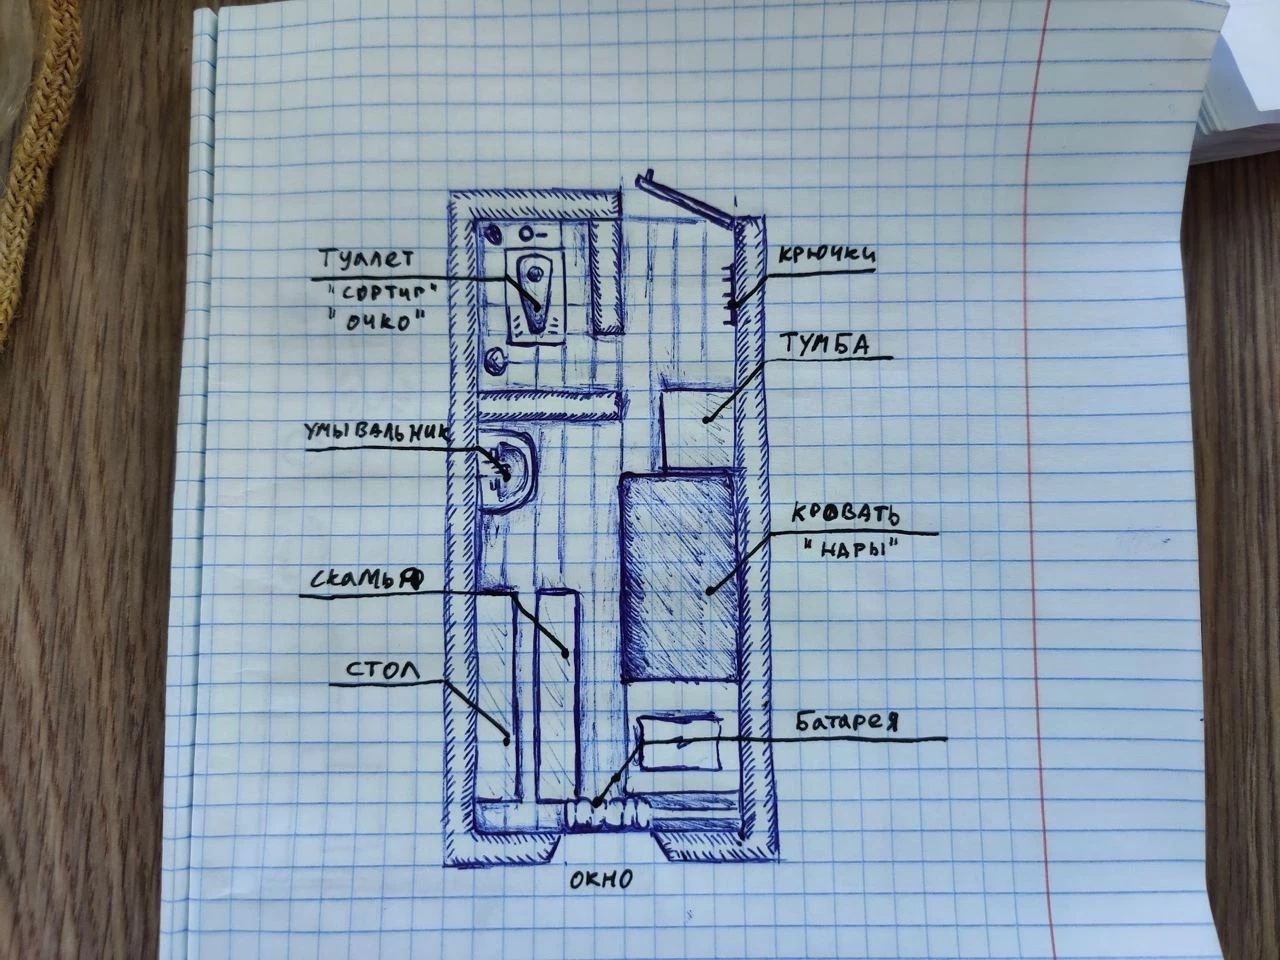 Туалет
"сортир"
"очко"
умывальник
скамья
стол
крючки
тумба
кровать
"нары"
батарея
окно